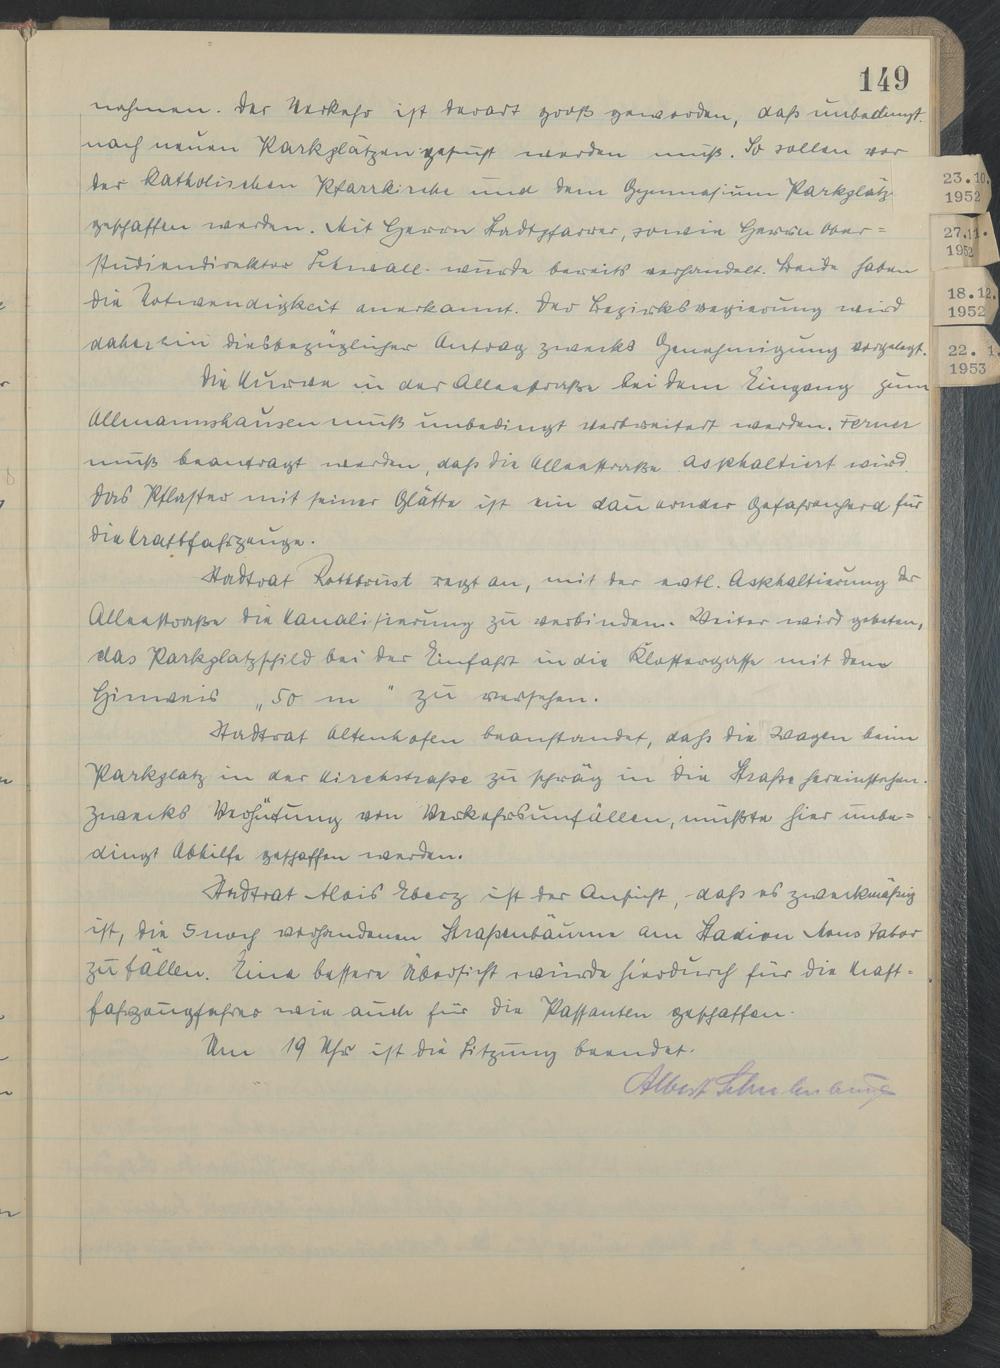 149
nehmen. Der Verkehr ist derart groß geworden, daß unbedingt
nach neuen Parkplätzen gesucht werden muß. So sollen vor
der Katholischen Pfarrkirche und dem Gymnasium Parkplätze
geschaffen werden. Mit Herrn Stadtpfarrer, sowie Herrn Ober=
studiendirektor Schwall wurde bereits verhandelt. Beide haben
die Notwendigkeit anerkannt. Der Bezirksregierung wird
daher ein diesbezüglicher Antrag zwecks Genehmigung vorgelegt.
Die Kurve in der Alleestraße bei dem Eingang zum
Allmannshausen muß unbedingt verbreitert werden. Ferner
muß beantragt werden, daß die Alleestraße asphaltiert wird.
Das Pflaster mit seiner Glätte ist ein dauernder Gefahrenherd für
die Kraftfahrzeuge.
Stadtrat Rottbrust regt an, mit der evtl. Asphaltierung der
Alleestraße die Kanalisierung zu verbinden. Weiter wird gebeten,
das Parkplatzschild bei der Einfahrt in die Klostergasse mit dem
Hinweis „50 m" zu versehen.
Stadtrat Altenhofen beanstandet, daß die Wagen beim
Parkplatz in der Kirchstraße zu schräg in die Straße hereinstehen.
Zwecks Verhütung von Verkehrsunfällen, müßte hier unbe=
dingt Abhilfe geschaffen werden.
Stadtrat Alois Eberz ist der Ansicht, daß es zweckmäßig
ist, die 5 noch vorhandenen Straßenbäume am Stadion Mons Tabor
zu fällen. Eine bessere Übersicht würde hierdurch für die Kraft=
fahrzeugfahrer wie auch für die Passanten geschaffen.
Um 19 Uhr ist die Sitzung beendet.
Albert
23.10.
1952
27.11.
1952
18.12.
1952
22. 1.
1953